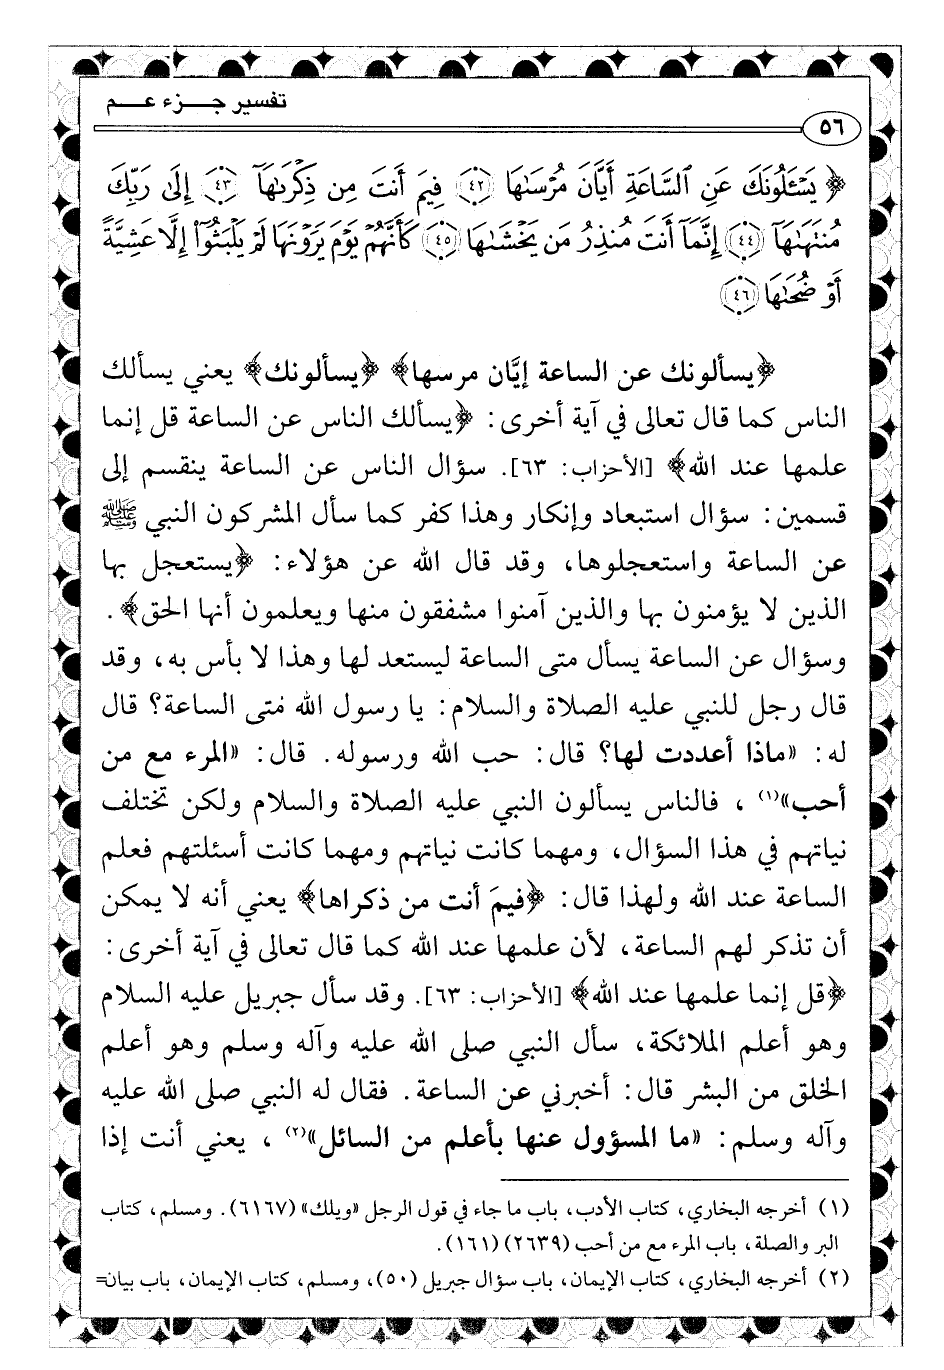 تفسير جزء عم
٥٦
﴿ يَسْـَٔلُونَكَ عَنِ ٱلسَّاعَةِ أَيَّانَ مُرْسَىٰهَا ٤٢ فِيمَ أَنتَ مِن ذِكْرَىٰهَآ ٤٣ إِلَىٰ رَبِّكَ
مُنتَهَىٰهَآ ٤٤ إِنَّمَآ أَنتَ مُنذِرُ مَن يَخْشَىٰهَا ٤٥ كَأَنَّهُمْ يَوْمَ يَرَوْنَهَا لَمْ يَلْبَثُوٓا۟ إِلَّا عَشِيَّةً
أَوْ ضُحَىٰهَا ٤٦
﴿يسألونك عن الساعة إيَّان مرسها﴾ ﴿يسألونك﴾ يعني يسألك
الناس كما قال تعالى في آية أخرى: ﴿يسألك الناس عن الساعة قل إنما
علمها عند الله﴾ [الأحزاب: ٦٣]. سؤال الناس عن الساعة ينقسم إلى
قسمين: سؤال استبعاد وإنكار وهذا كفر كما سأل المشركون النبي ﷺ
عن الساعة واستعجلوها، وقد قال الله عن هؤلاء: ﴿يستعجل بها
الذين لا يؤمنون بها والذين آمنوا مشفقون منها ويعلمون أنها الحق﴾.
وسؤال عن الساعة يسأل متى الساعة ليستعد لها وهذا لا بأس به، وقد
قال رجل للنبي عليه الصلاة والسلام: يا رسول الله متى الساعة؟ قال
له: «ماذا أعددت لها؟ قال: حب الله ورسوله. قال: «المرء مع من
أحب»(١)، فالناس يسألون النبي عليه الصلاة والسلام ولكن تختلف
نياتهم في هذا السؤال، ومهما كانت نياتهم ومهما كانت أسئلتهم فعلم
الساعة عند الله ولهذا قال: ﴿فيمَ أنت من ذكراها﴾ يعني أنه لا يمكن
أن تذكر لهم الساعة، لأن علمها عند الله كما قال تعالى في آية أخرى:
﴿قل إنما علمها عند الله﴾ [الأحزاب: ٦٣]. وقد سأل جبريل عليه السلام
وهو أعلم الملائكة، سأل النبي صلى الله عليه وآله وسلم وهو أعلم
الخلق من البشر قال: أخبرني عن الساعة. فقال له النبي صلى الله عليه
وآله وسلم: «ما المسؤول عنها بأعلم من السائل»(٢)، يعني أنت إذا
(١) أخرجه البخاري، كتاب الأدب، باب ما جاء في قول الرجل «ويلك» (٦١٦٧). ومسلم، كتاب
البر والصلة، باب المرء مع من أحب (٢٦٣٩) (١٦١).
(٢) أخرجه البخاري، كتاب الإيمان، باب سؤال جبريل (٥٠)، ومسلم، كتاب الإيمان، باب بيان=